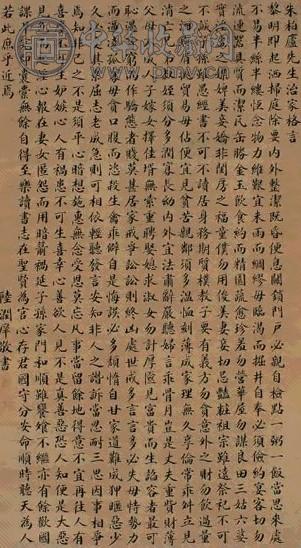 朱柏廬先生治家格言
黎明即起洒掃庭除要內外整潔既昏便息關鎖門戶必親自檢點一粥一飯當思來處
不易半絲半縷恒念物力維艱宜未雨而綢繆毋臨渴而掘井自奉必須儉約宴客切勿
流連器具質而潔瓦缶勝金玉飲食約而精園蔬愈珍羞勿營華屋勿謀良田三姑六婆
實淫盜之媒婢美妾嬌非閨房之福童僕勿用俊美妻妾切忌豔粧祖宗雖遠祭祀不可
不誠子孫雖愚經書不可不讀居身務期質樸教子要有義方勿貪意外之財勿飲過量
之酒與肩挑貿易毋佔便宜見貧苦親鄰須多溫恤刻薄成家理無久享倫常乖舛立見
消亡兄弟叔姪須分多潤寡長幼內外宜法肅辭嚴聽婦言乖骨肉豈是丈夫重貲財薄
父母不成人子嫁女擇佳壻無索重聘娶媳求淑女勿計厚奩見富貴而生諂容者最可
恥遇貧窮而作驕態者賤莫甚居家戒爭訟訟則終凶處世戒多言言多必失毋恃勢力
而凌逼孤寡毋貪口腹而恣殺生禽乖僻自是悔誤必多頹惰自甘家道難成狎暱惡少
久必受其累屈志老成急則可相依輕聽發言安知非人之譖訴當忍耐三思因事相爭
焉知非己之不是須平心暗想施惠無念受恩莫忘凡事當留餘地得意不宜再往人有
喜慶不可生妬嫉心人有禍患不可生喜幸心善欲人見不是真善惡恐人知便是大惡
見色而起淫心報在妻女匿怨而用暗箭禍延子孫家門和順雖饔飧不繼亦有餘歡國
課早完即囊橐無餘自得至樂讀書志在聖賢為官心存君國守分安命順時聽天為人
若此庶乎近焉
陸潤庠敬書
中华收藏网